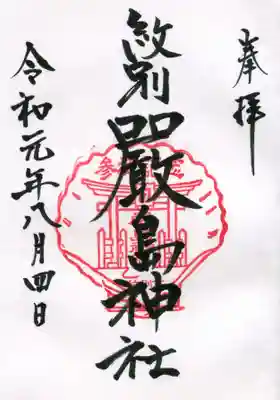 奉拝
紋別
厳島神社
令和元年八月四日